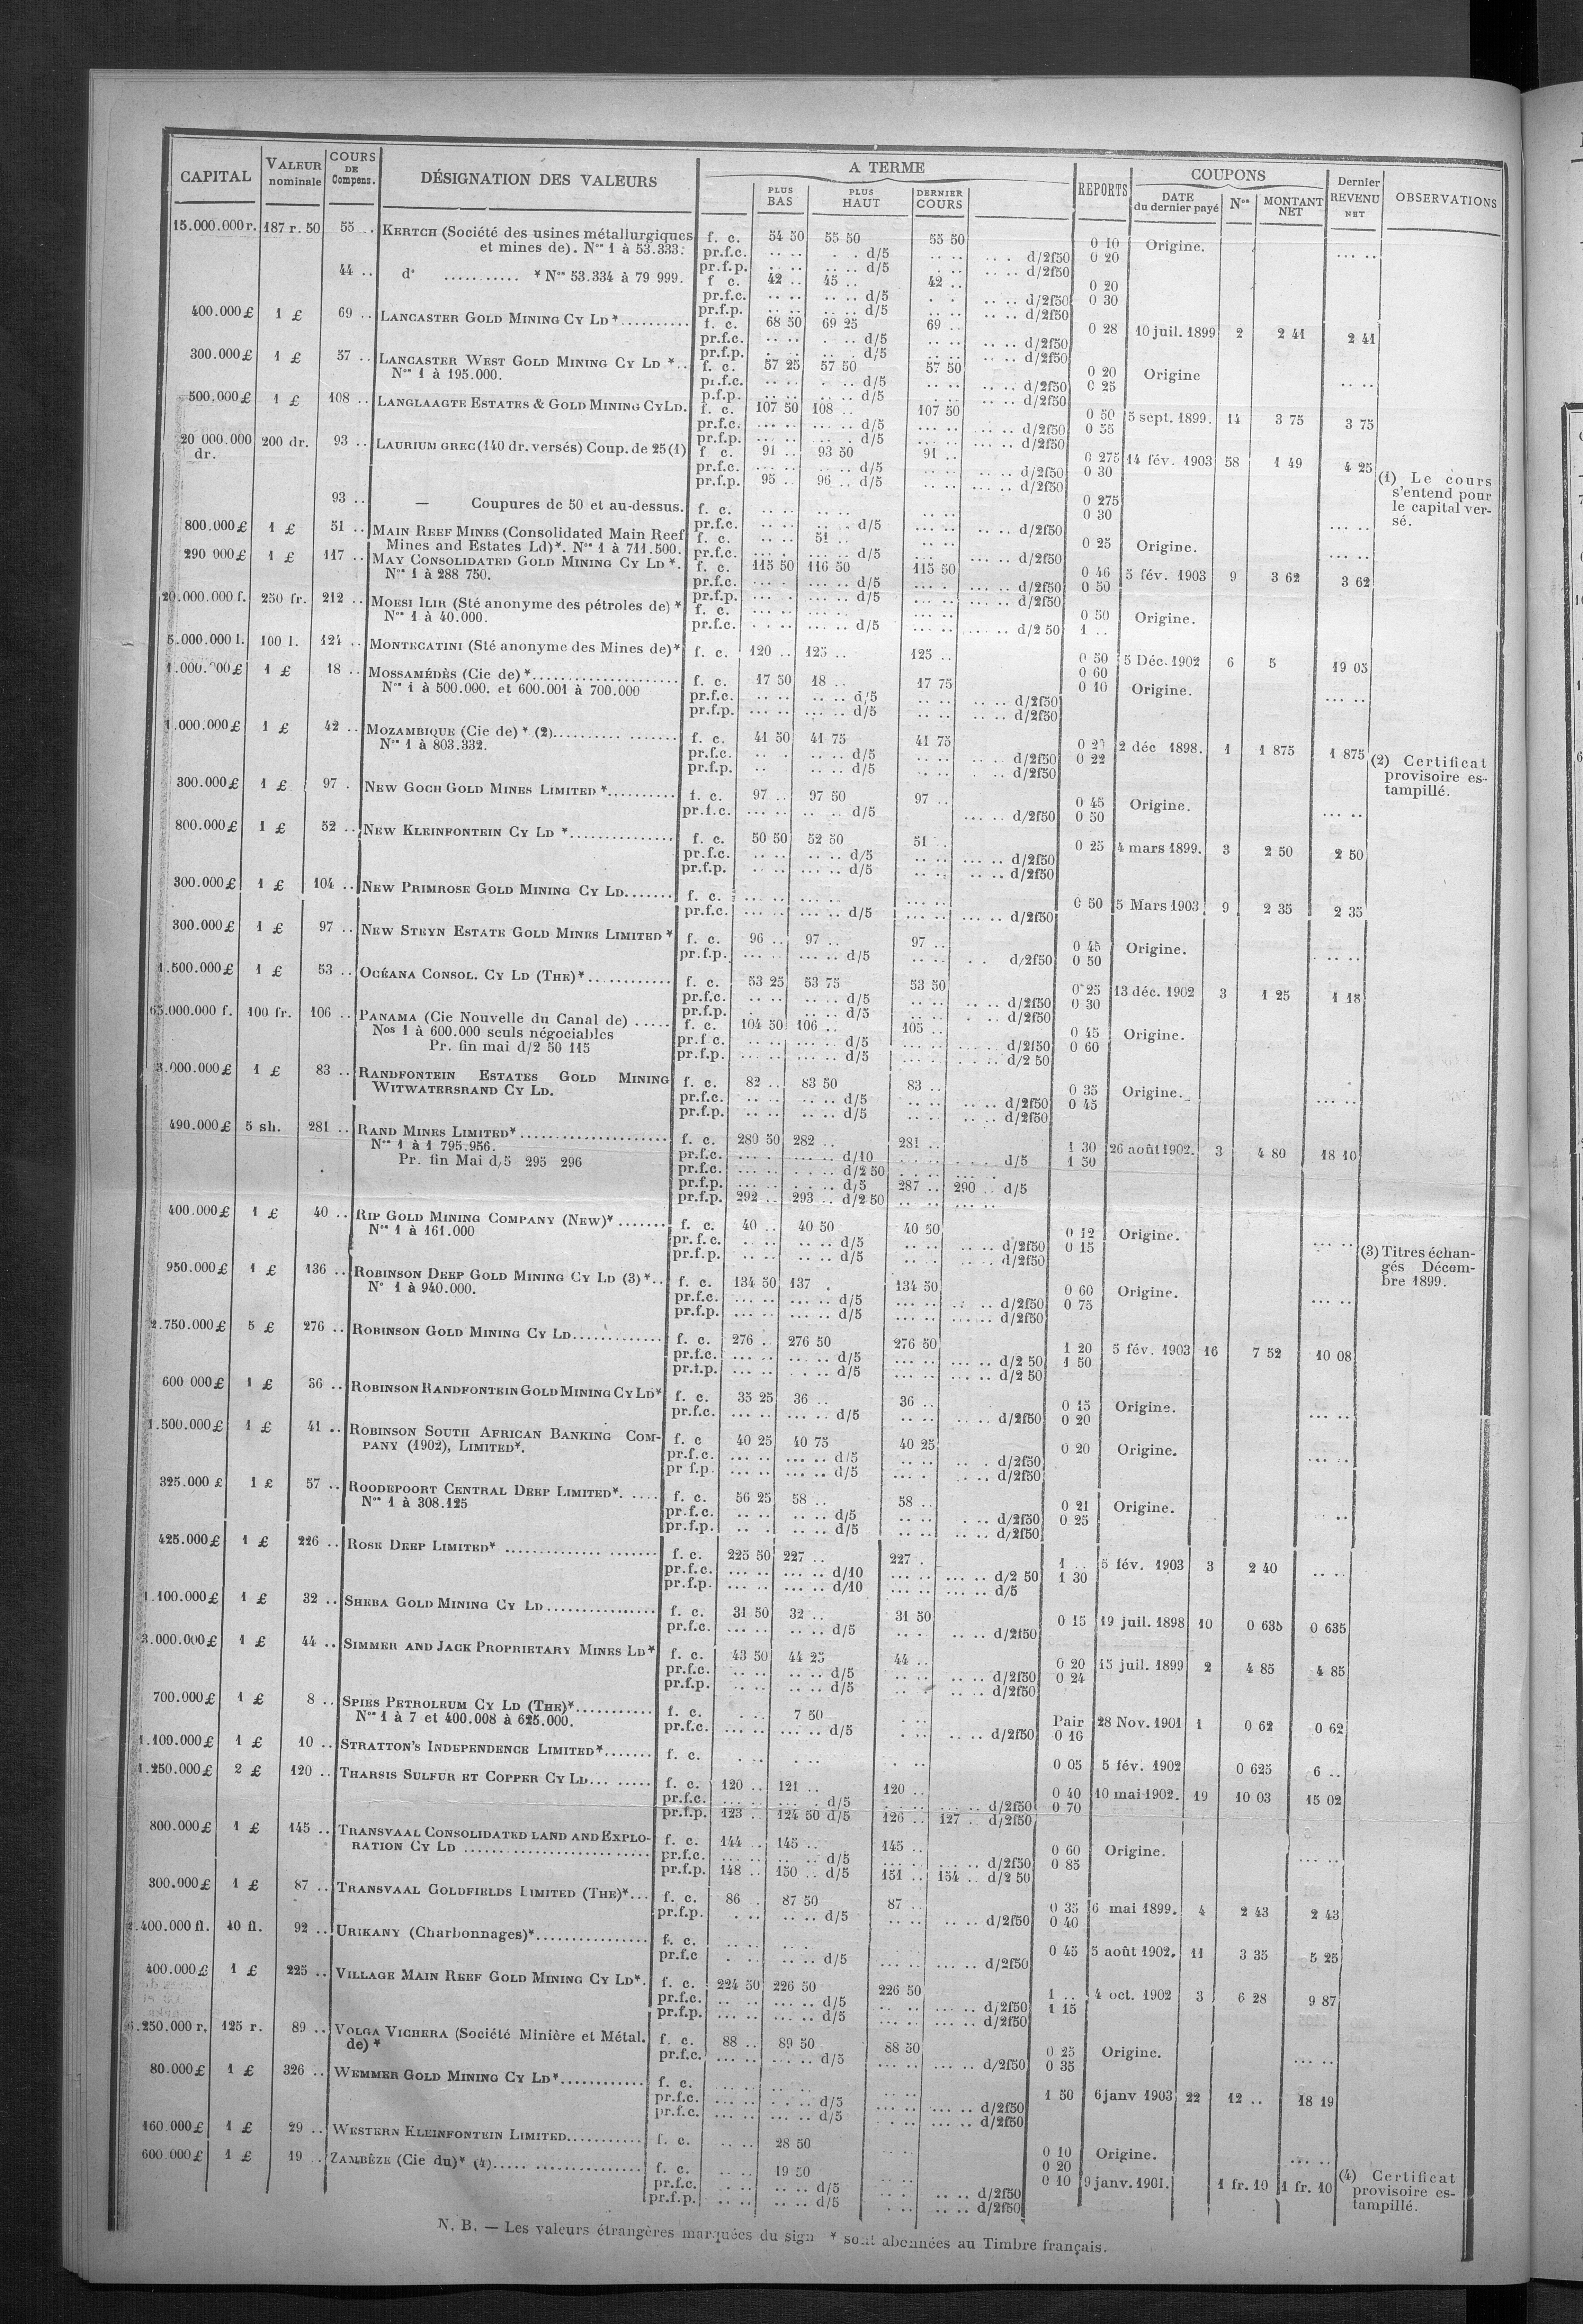 CAPITAL VALEUR nominale COURS DE Compens. DÉSIGNATION DES VALEURS A TERME PLUS BAS PLUS HAUT DERNIER COURS REPORTS COUPONS DATE du dernier payé Nos MONTANT NET Dernier REVENU NET OBSERVATIONS
15.000.000 r. 187 r. 50 55 .. KERTCH (Société des usines métallurgiques f. c. 54 50 55 50 55 50 0 10 Origine.
et mines de). Nos 1 à 53.333. pr.f.c. d/5 d/2f50 0 20
pr.f.p. d/5 d/2f50
44 .. do * Nos 53.334 à 79 999. f c. 42 .. 45 .. 42 .. 0 20
pr.f.c. d/5 d/2f50 0 30
pr.f.p. d/5 d/2f50
400.000 £ 1 £ 69 .. LANCASTER GOLD MINING CY LD * f. c. 68 50 69 25 69 .. 0 28 10 juil. 1899 2 2 41 2 41
pr.f.c. d/5 d/2f50
pr.f.p. d/5 d/2f50
300.000 £ 1 £ 57 .. LANCASTER WEST GOLD MINING CY LD * f. c. 57 25 57 50 57 50 0 20 Origine
Nos 1 à 195.000. pr.f.c. d/5 d/2f50 0 25
p.f.p. d/5 d/2f50
500.000 £ 1 £ 108 .. LANGLAAGTE ESTATES & GOLD MINING CY LD. f. c. 107 50 108 .. 107 50 0 50 5 sept. 1899. 14 3 75 3 75
pr.f.c. d/5 d/2f50 0 55
pr.f.p. d/5 d/2f50
20 000.000 dr. 200 dr. 93 .. LAURIUM GREC (140 dr. versés) Coup. de 25 (1) f c. 91 .. 93 50 91 .. 0 275 14 fév. 1903 58 1 49 4 25
pr.f.c. d/5 d/2f50 0 30
pr.f.p. 95 .. 96 .. d/5 d/2f50
(1) Le cours
s'entend pour
le capital ver-
sé.
93 .. — Coupures de 50 et au-dessus. f. c. 0 275
pr.f.c. d/5 d/2f50 0 30
800.000 £ 1 £ 51 .. MAIN REEF MINES (Consolidated Main Reef f. c. 51 .. 0 25 Origine.
Mines and Estates Ld) *. Nos 1 à 711.500. pr.f.c. d/5 d/2f50
290 000 £ 1 £ 117 .. MAY CONSOLIDATED GOLD MINING CY LD *. f. c. 115 50 116 50 115 50 0 46 5 fév. 1903 9 3 62 3 62
Nos 1 à 288 750. pr.f.c. d/5 d/2f50 0 50
pr.f.p. d/5 d/2f50
20.000.000 f. 250 fr. 212 .. MORSI ILIR (Sté anonyme des pétroles de) * f. c. 0 50 Origine.
Nos 1 à 40.000. pr.f.c. d/5 d/2 50 1 ..
5.000.000 l. 100 l. 124 .. MONTECATINI (Sté anonyme des Mines de) * f. c. 120 .. 125 .. 125 .. 0 50 5 Déc. 1902 6 5 19 05
0 60
1.000.000 £ 1 £ 18 .. MOSSAMÉDÈS (Cie de) * f. c. 17 50 18 .. 17 75 0 10 Origine.
Nos 1 à 500.000. et 600.001 à 700.000 pr.f.c. d/5 d/2f50
pr.f.p. d/5 d/2f50
1.000.000 £ 1 £ 42 .. MOZAMBIQUE (Cie de) * (2) f. c. 41 50 41 75 41 75 2 déc 1898. 1 1 875 1 875
Nos 1 à 803.332. pr.f.c. d/5 d/2f50 0 22
pr.f.p. d/5 d/2f50
(2) Certificat
provisoire es-
tampillé.
300.000 £ 1 £ 97 . NEW GOCH GOLD MINES LIMITED * f. c. 97 .. 97 50 97 .. 0 45 Origine.
pr.f.c. d/5 d/2f50 0 50
800.000 £ 1 £ 52 .. NEW KLEINFONTEIN CY LD * f. c. 50 50 52 50 51 .. 0 25 4 mars 1899. 3 2 50 2 50
pr.f.c. d/5 d/2f50
pr.f.p. d/5 d/2f50
300.000 £ 1 £ 104 .. NEW PRIMROSE GOLD MINING CY LD f. c. 0 50 5 Mars 1903 9 2 35 2 35
pr.f.c. d/5 d/2f50
300.000 £ 1 £ 97 .. NEW STEYN ESTATE GOLD MINES LIMITED * f. c. 96 .. 97 .. 97 .. 0 45 Origine.
pr.f.p. d/5 d/2f50 0 50
1.500.000 £ 1 £ 53 .. OCÉANA CONSOL. CY LD (THE) * f. c. 53 25 53 75 53 50 0 25 13 déc. 1902 3 1 25 1 18
pr.f.c. d/5 d/2f50 0 30
pr.f.p. d/5 d/2f50
65.000.000 f. 100 fr. 106 .. PANAMA (Cie Nouvelle du Canal de) f. c. 104 50 106 .. 105 .. 0 45 Origine.
Nos 1 à 600.000 seuls négociables pr.f c. d/5 d/2f50 0 60
Pr. fin mai d/2 50 115 pr.f.p. d/5 d/2 50
3.000.000 £ 1 £ 83 .. RANDFONTEIN ESTATES GOLD MINING f. c. 82 .. 83 50 83 .. 0 35 Origine.
WITWATERSRAND CY LD. pr.f.c. d/5 d/2f50 0 45
pr.f.p. d/5 d/2f50
490.000 £ 5 sh. 281 .. RAND MINES LIMITED * f. c. 280 50 282 .. 281 .. 1 30 26 août 1902. 3 4 80 18 10
Nos 1 à 1 795.956. pr.f.c. d/10 d/5 1 50
Pr. fin Mai d/5 295 296 pr.f.c. d/2 50
pr.f.p. d/5 287 .. 290 .. d/5
pr.f.p. 292 .. 293 .. d/2 50
400.000 £ 1 £ 40 .. RIP GOLD MINING COMPANY (NEW) * f. c. 40 .. 40 50 40 50 0 12 Origine.
Nos 1 à 161.000 pr.f.c. d/5 d/2f50 0 15
pr.f.p. d/5 d/2f50
(3) Titres échan-
gés Décem-
bre 1899.
950.000 £ 1 £ 136 .. ROBINSON DEEP GOLD MINING CY LD (3) * f. c. 134 50 137 . 134 50 0 60 Origine.
No 1 à 940.000. pr.f.c. d/5 d/2f50 0 75
pr.f.p. d/5 d/2f50
2.750.000 £ 5 £ 276 .. ROBINSON GOLD MINING CY LD f. c. 276 .. 276 50 276 50 1 20 5 fév. 1903 16 7 52 10 08
pr.f.c. d/5 d/2 50 1 50
pr.f.p. d/5 d/2 50
600 000 £ 1 £ 36 .. ROBINSON RANDFONTEIN GOLD MINING CY LD * f. c. 35 25 36 .. 36 .. 0 15 Origine.
pr.f.c. d/5 d/2f50 0 20
1.500.000 £ 1 £ 41 .. ROBINSON SOUTH AFRICAN BANKING COM- f. c 40 25 40 75 40 25 0 20 Origine.
PANY (1902), LIMITED *. pr.f.c. d/5 d/2f50
pr f.p. d/5 d/2f50
325.000 £ 1 £ 57 .. ROODEPOORT CENTRAL DEEP LIMITED *. f. c. 56 25 58 .. 58 .. 0 21 Origine.
Nos 1 à 308.125 pr.f.c. d/5 d/2f50 0 25
pr.f.p. d/5 d/2f50
425.000 £ 1 £ 226 .. ROSE DEEP LIMITED * f. c. 225 50 227 .. 227 . 1 .. 5 fév. 1903 3 2 40
pr.f.c. d/10 d/2 50 1 30
pr.f.p. d/10 d/5
1.100.000 £ 1 £ 32 .. SHEBA GOLD MINING CY LD f. c. 31 50 32 .. 31 50 0 15 19 juil. 1898 10 0 635 0 635
pr.f.c. d/5 d/2f50
3.000.000 £ 1 £ 44 .. SIMMER AND JACK PROPRIETARY MINES LD * f. c. 43 50 44 25 44 .. 0 20 15 juil. 1899 2 4 85 4 85
pr.f.c. d/5 d/2f50 0 24
pr.f.p. d/5 d/2f50
700.000 £ 1 £ 8 .. SPIES PETROLEUM CY LD (THE) * f. c. 7 50 Pair 28 Nov. 1901 1 0 62 0 62
Nos 1 à 7 et 400.008 à 625.000. pr.f.c. d/5 d/2f50 0 16
1.100.000 £ 1 £ 10 .. STRATTON'S INDEPENDENCE LIMITED * f. c. 0 05 5 fév. 1902 0 625 6 ..
1.250.000 £ 2 £ 120 .. THARSIS SULFUR ET COPPER CY LD f. c. 120 .. 121 .. 120 .. 0 40 10 mai 1902. 19 10 03 15 02
pr.f.c. d/5 d/2f50 0 70
pr.f.p. 123 . 124 50 d/5 126 .. 127 .. d/2f50
800.000 £ 1 £ 145 .. TRANSVAAL CONSOLIDATED LAND AND EXPLO- f. c. 144 .. 145 .. 145 .. 0 60 Origine.
RATION CY LD pr.f.c. d/5 d/2f50 0 85
pr.f.p. 148 .. 150 .. d/5 151 .. 154 .. d/2 50
300.000 £ 1 £ 87 .. TRANSVAAL GOLDFIELDS LIMITED (THE) * f. c. 86 . 87 50 87 .. 0 35 6 mai 1899. 4 2 43 2 43
pr.f.p. d/5 d/2f50 0 40
2.400.000 fl. 10 fl. 92 .. URIKANY (Charbonnages) * f. c. 0 45 5 août 1902. 11 3 35 5 25
pr.f.c d/5 d/2f50
400.000 £ 1 £ 225 .. VILLAGE MAIN REEF GOLD MINING CY LD *. f. c. 224 50 226 50 226 50 1 .. 4 oct. 1902 3 6 28 9 87
pr.f.c. d/5 d/2f50 1 15
pr.f.p. d/5 d/2f50
6.250.000 r. 125 r. 89 .. VOLGA VICHERA (Société Minière et Métal. f. c. 88 .. 89 50 88 50 0 25 Origine.
de) * pr.f.c. d/5 d/2f50 0 35
80.000 £ 1 £ 326 .. WEMMER GOLD MINING CY LD * f. c. 1 50 6 janv 1903 22 12 .. 18 19
pr.f.c. d/5 d/2f50
pr.f.c. d/5 d/2f50
160.000 £ 1 £ 29 .. WESTERN KLEINFONTEIN LIMITED f. c. 28 50 0 10 Origine.
0 20
600 000 £ 1 £ 19 .. ZAMBÈZE (Cie du) * (4) f. c. 19 50 0 10 9 janv. 1901. 1 fr. 10 1 fr. 10
pr.f.c. d/5 d/2f50
pr.f.p. d/5 d/2f50
(4) Certificat
provisoire es-
tampillé.
N. B. — Les valeurs étrangères marquées du sign * sont abonnées au Timbre français.